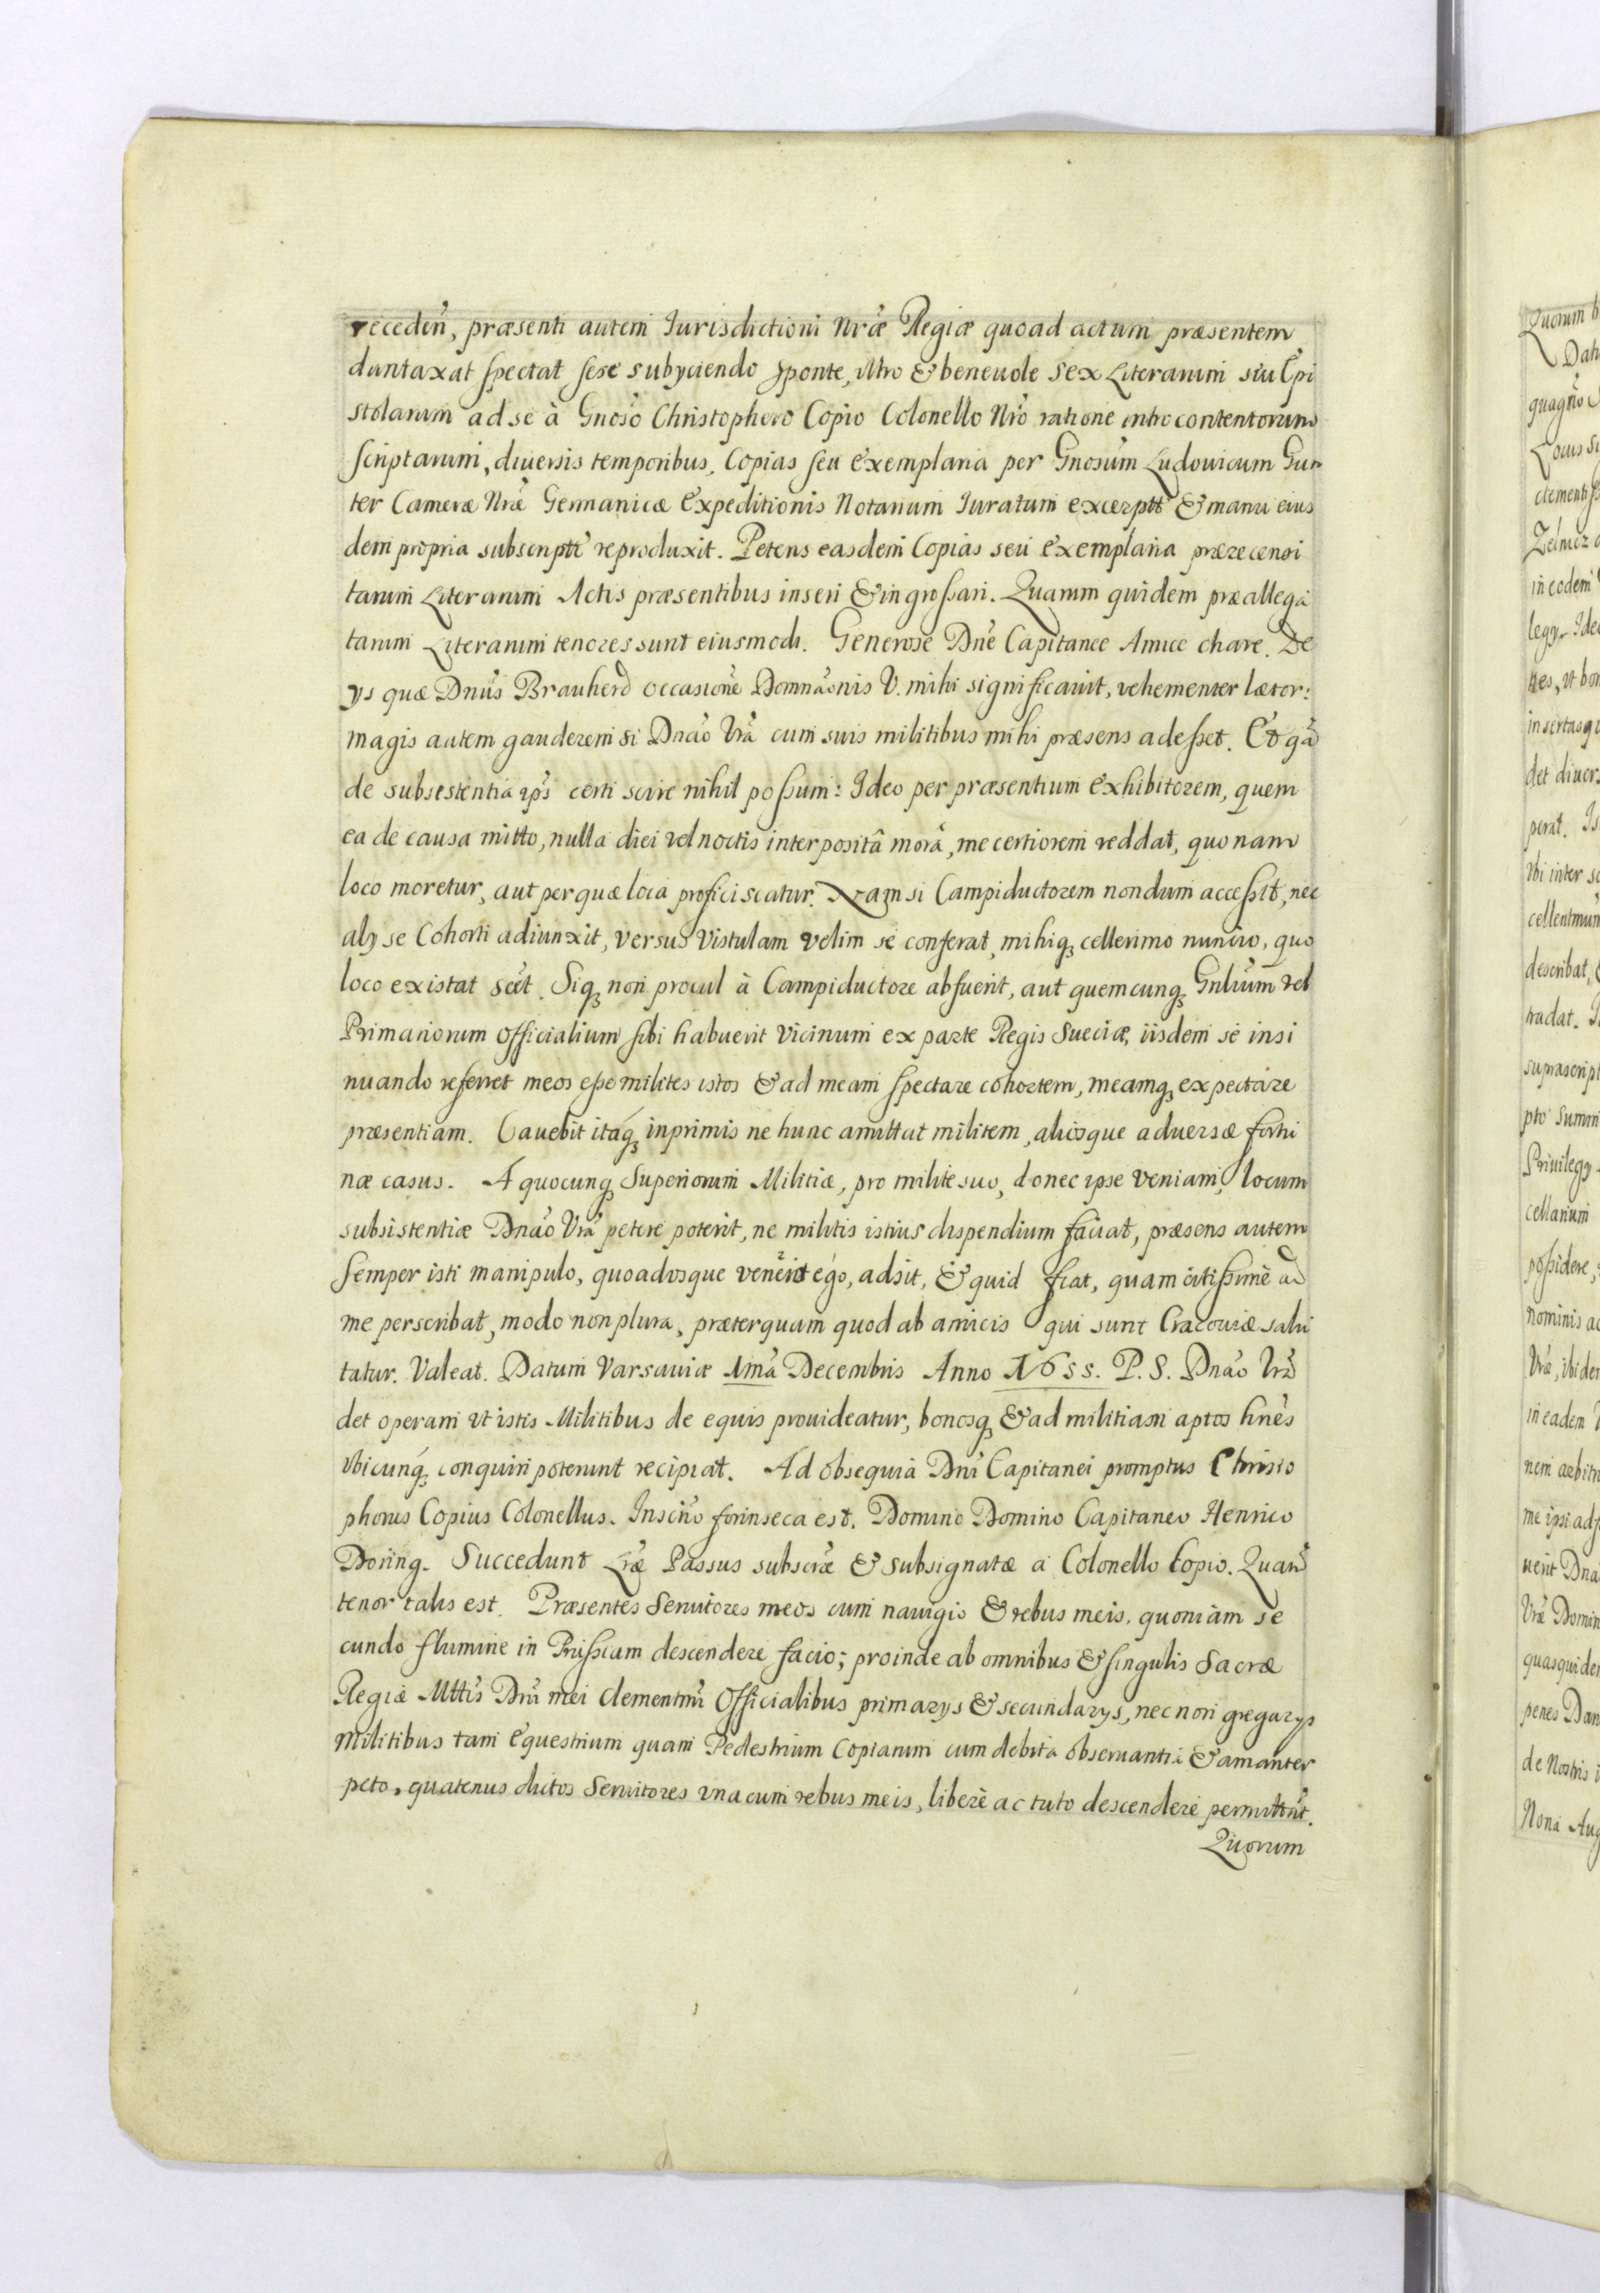 recedeñ, præsenti autem Iurisdictioni Nræ Regiæ quoad actum præsentem
duntaxat spectat sese subyciendo sponte, ultro & beneuole sex Literarum siu Epi
stolarum ad se à Gnoso Christophero Copio Colonello Nro ratione introcontentorum
scriptarum, diuersis temporibus, Copias seu exemplaria per Gnosum Ludouicum Gun
ter Cameræ Nræ Germanicæ Expeditionis Notarium Iuratum excerptt & manu eius
dem propria subscriptt reproduxit. Petens easdem Copias seu exemplaria præzecensi
tarum Literarum Actis præsentibus inseri & ingrossari. Quarum quidem præallega
tarum Literarum tenores sunt eiusmodi. Generose Dne Capitanee Amice chare. De
ys quæ Dnus Brauherd occasione Domnaonis V. mihi significauit, vehementer lætor:
magis autem gauderem si Dnao Vra cum suis militibus mihi præsens adesset. Et qa
de subsestentia ips certi scire nihil possum: Ideo per præsentium exhibitorem, quem
ea de causa mitto, nulla diei vel noctis interpositâ morâ, me certiorem reddat, quonam
loco moretur, aut per quæ loca proficiscatur. Nam si Campiductorem nondum accessit, nec
aly se Cohorti adiunxit, versus Vistulam velim se conferat, mihiq; cellerimo nuncio, quo
loco existat scet. Siq; non procul à Campiductore abfuerit, aut quemcunq; Gnlium vel
Primariorum Officialium sibi habuerit vicinum ex parte Regis Sueciæ, iisdem se insi
nuando referret meos esse milites istos & ad meam spectare cohortem, meamq; expectare
præsentiam. Cauebit itaq; inprimis ne hunc amittat militem, aliosque aduersæ fortu
næ casus. A quocunq; Superiorum Militiæ, pro milite suo, donec ipse veniam, locum
subsistentiæ Dnao Vra petere poterit, ne militis istius dispendium faciat, præsens autem
semper isti manipulo, quoadusque venero ego, adsit, & quid fiat, quam citissime ad
me perscribat, modo non plura, præterquam quod ab amicis qui sunt Cracouiæ salu
tatur. Valeat. Datum Varsauiæ 1ma Decembris Anno 1655. P. S. Dnao Vra
det operam vt istis Militibus de equis prouideatur, bonosq; & ad militiam aptos hnes
vbicunq; conquiri poterunt recipiat. Ad obsequia Dni Capitanei promptus Christo
phorus Copius Colonellus. Inscrio forinseca est. Domino Domino Capitaneo Henrico
Doring. Succedunt Lræ Passus subscræ & subsignatæ a Colonello Copio. Quar
tenor talis est. Præsentes Seruitores meos cum nauigio & rebus meis, quoniam se
cundo flumine in Prussiam descendere facio; proinde ab omnibus & singulis Sacræ
Regiæ Mttis Dni mei clementmi Officialibus primarys & secundarys, nec non gregarys
Militibus tam equestrium quam Pedestrium Copiarum cum debita obseruantia & amanter
peto, quatenus dictos Seruitores vna cum rebus meis, libere ac tuto descendere permittnt.
Quorum